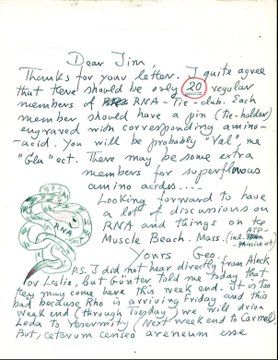 Dear Jim
Thanks for your letter. I quite agree
that there should be only 20 regular
members of RNA-Tie-club. Each
member should have a pin (tie-holder)
engraved with corresponding amino-
-acid. You will be probably "Val", me
"Glu" ect. There may be some extra
members for superflous
amino acides....
Looking forward to have
a lot of discursions on
RNA and things on the
Muscle Beach. Mass. (inst. ATP-
Myosine ect)
Yours Geo.
RNA
P.S. I did not hear directly from Aleck
or Leslie, but Günter told me today that
they may come here this week end. It is too
bad because Rho is arriving Friday and this
week end (through Tuesday) we will drive
Leda to Yosemity (Next week end to Carmel)
But, cetarum censeo areneum esse